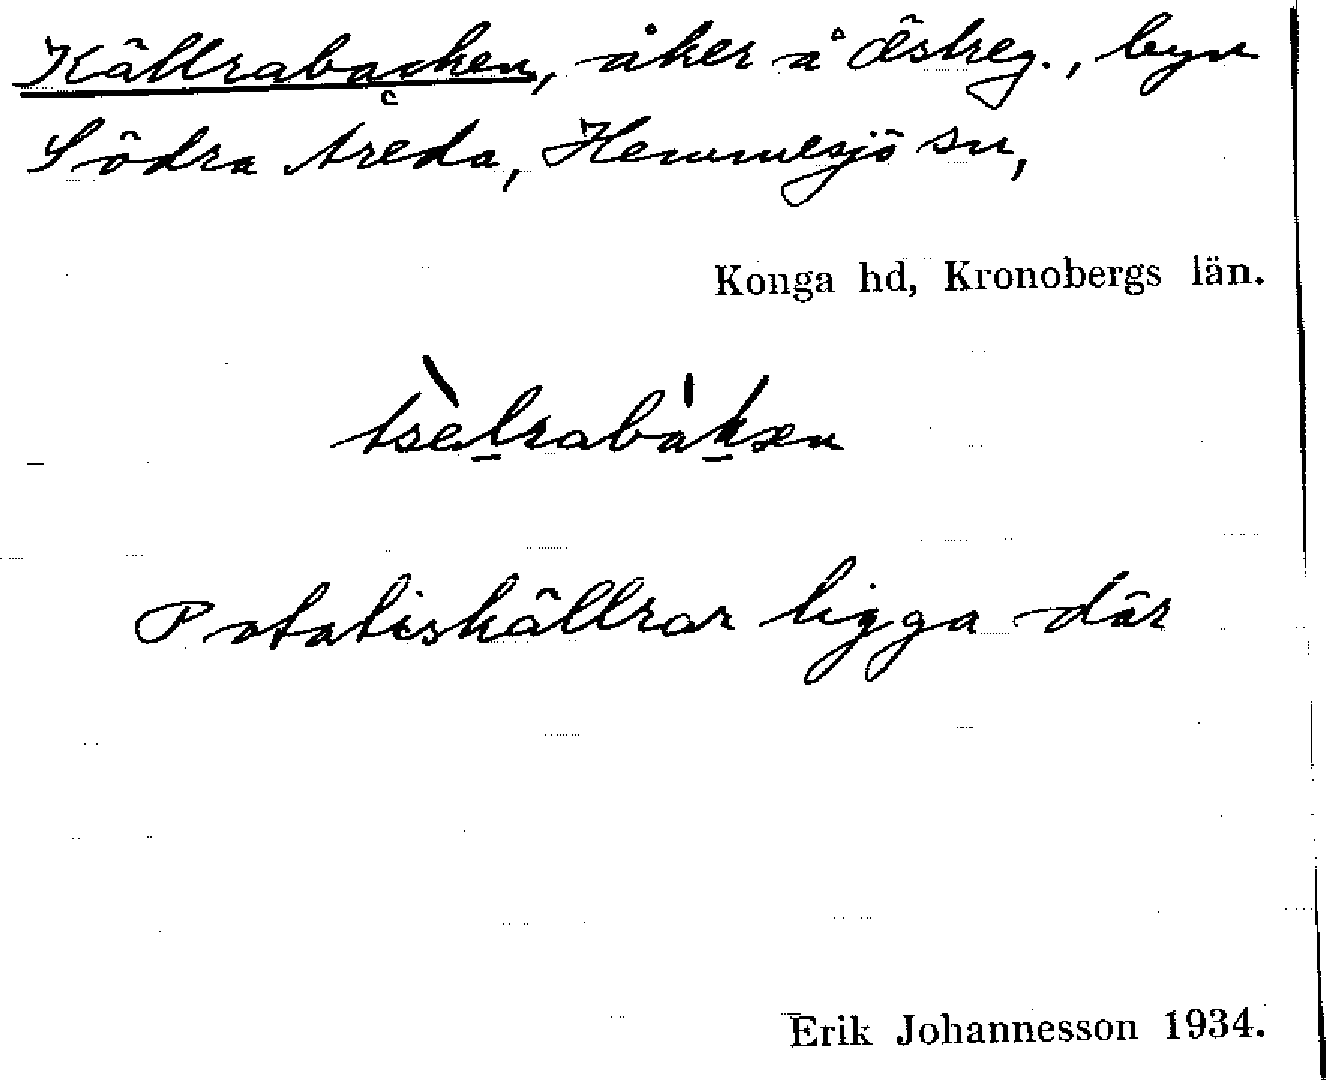 Källrabacken, åker å Östreg., byn
Södra Åreda, Hemmesjö sn,
Konga hd, Kronobergs län.
tsèlrabákæn
Potatiskällrar ligga där
Erik Johannesson 1934.